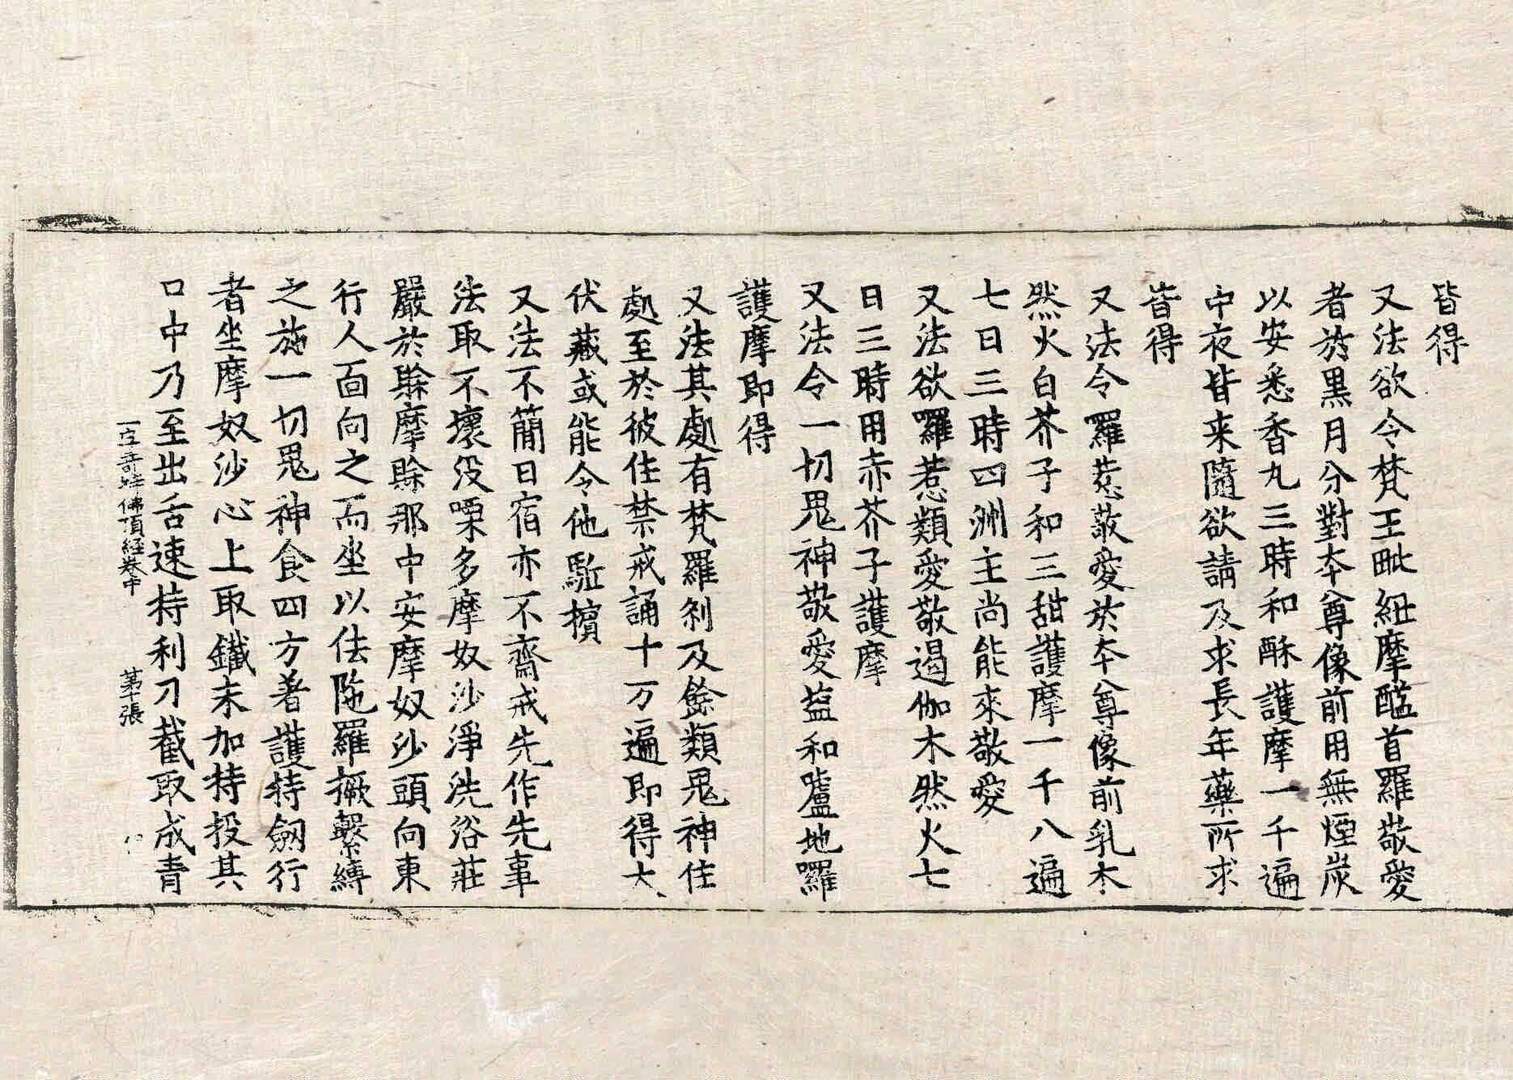 皆得
又法欲令梵王毗紐摩醯首羅敬愛
者於黑月分對本尊像前用無煙炭
以安悉香丸三時和酥護摩一千遍
中夜皆来隨欲請及求長年藥所求
皆得
又法令羅惹敬愛於本尊像前乳木
然火白芥子和三甜護摩一千八遍
七日三時四洲主尚能來敬愛
又法欲囉惹類愛敬遏伽木然火七
日三時用赤芥子護摩
又法令一切鬼神敬愛盐和嚧地囉
護摩即得
又法其處有梵羅剎及餘類鬼神住
處至於彼住禁戒誦十万遍即得大
伏藏或能令他駈擯
又法不簡日宿亦不齋戒先作先事
法取不壞没嘌多摩奴沙淨洗浴莊
嚴於賒摩賒那中安摩奴沙頭向東
行人面向之而坐以佉陁羅橛繫縛
之施一切鬼神食四方著護持劔行
者坐摩奴沙心上取鐵末加持投其
口中乃至出舌速持利刀截取成青
一字奇特佛頂経卷中 第十張